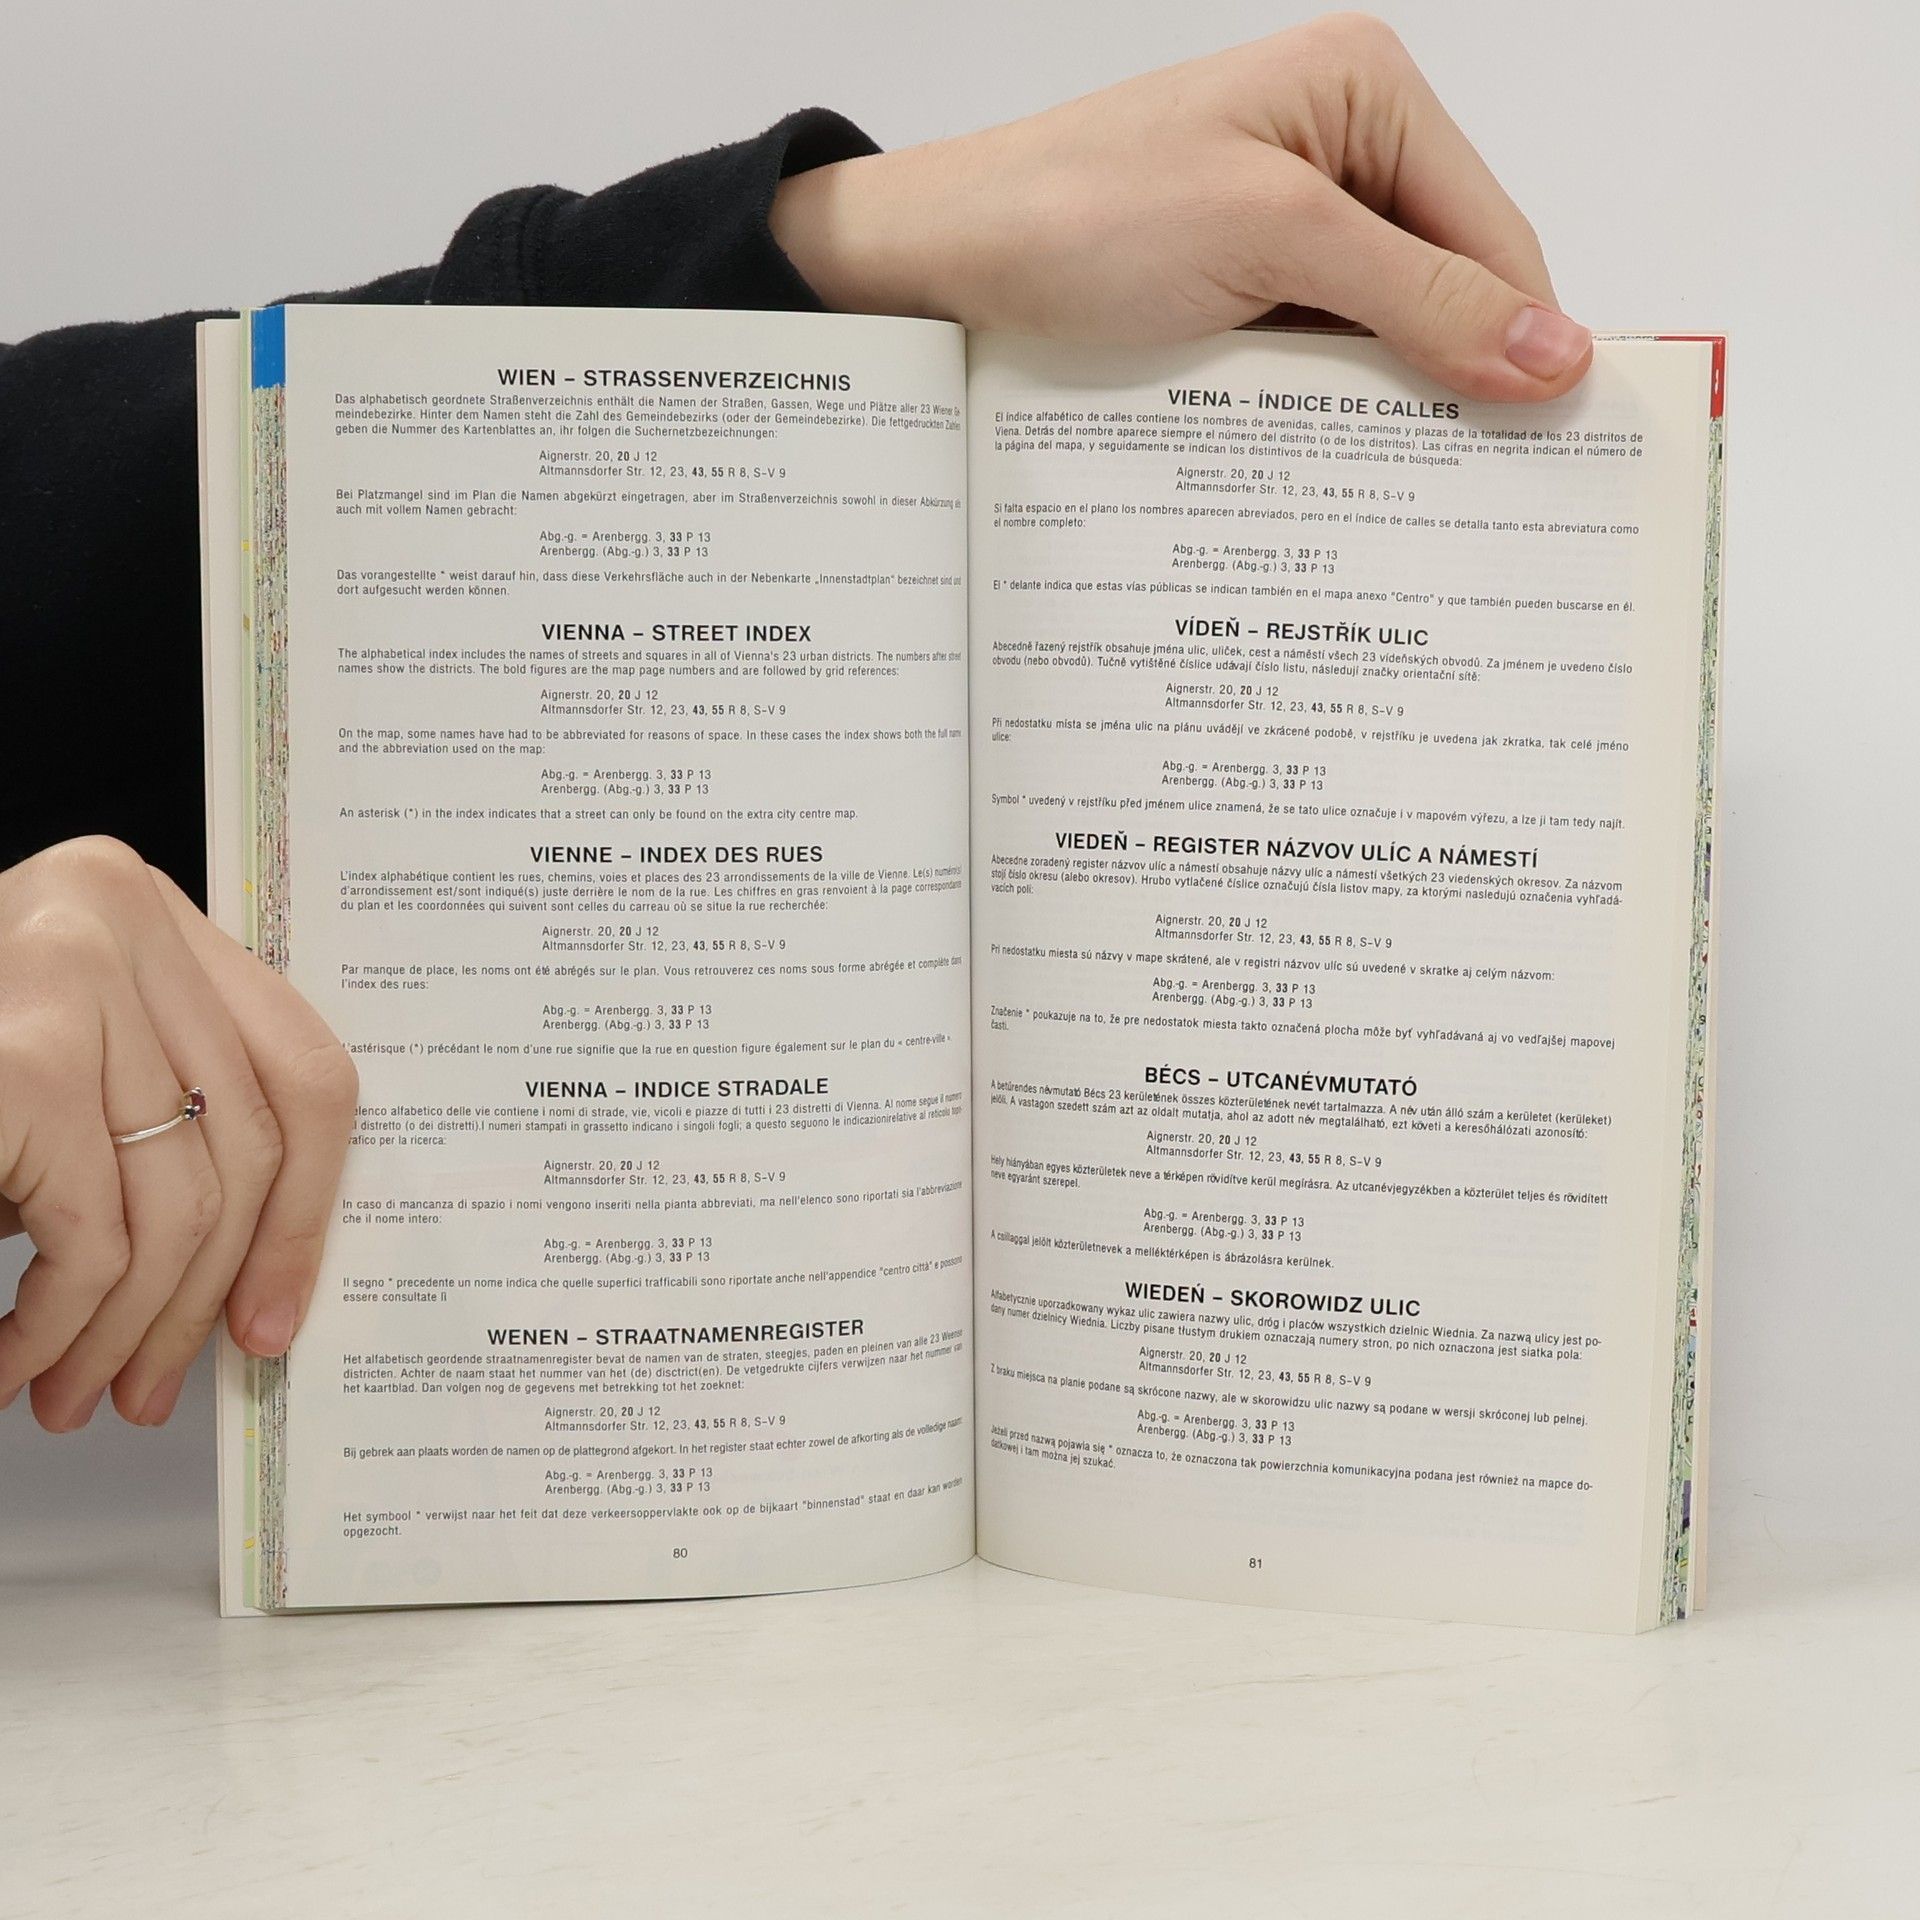 WIEN – STRASSENVERZEICHNIS
Das alphabetisch geordnete Straßenverzeichnis enthält die Namen der Straßen, Gassen, Wege und Plätze aller 23 Wiener Ge-
meindebezirke. Hinter dem Namen steht die Zahl des Gemeindebezirks (oder der Gemeindebezirke). Die fettgedruckten Zahlen
geben die Nummer des Kartenblattes an, ihr folgen die Suchernetzbezeichnungen:
Aignerstr. 20, 20 J 12
Altmannsdorfer Str. 12, 23, 43, 55 R 8, S–V 9
Bei Platzmangel sind im Plan die Namen abgekürzt eingetragen, aber im Straßenverzeichnis sowohl in dieser Abkürzung als
auch mit vollem Namen gebracht:
Abg.-g. = Arenbergg. 3, 33 P 13
Arenbergg. (Abg.-g.) 3, 33 P 13
Das vorangestellte * weist darauf hin, dass diese Verkehrsfläche auch in der Nebenkarte „Innenstadtplan“ bezeichnet sind und
dort aufgesucht werden können.
VIENNA – STREET INDEX
The alphabetical index includes the names of streets and squares in all of Vienna's 23 urban districts. The numbers after street
names show the districts. The bold figures are the map page numbers and are followed by grid references:
Aignerstr. 20, 20 J 12
Altmannsdorfer Str. 12, 23, 43, 55 R 8, S–V 9
On the map, some names have had to be abbreviated for reasons of space. In these cases the index shows both the full name
and the abbreviation used on the map:
Abg.-g. = Arenbergg. 3, 33 P 13
Arenbergg. (Abg.-g.) 3, 33 P 13
An asterisk (*) in the index indicates that a street can only be found on the extra city centre map.
VIENNE – INDEX DES RUES
L'index alphabétique contient les rues, chemins, voies et places des 23 arrondissements de la ville de Vienne. Le(s) numéro(s)
d'arrondissement est/sont indiqué(s) juste derrière le nom de la rue. Les chiffres en gras renvoient à la page correspondante
du plan et les coordonnées qui suivent sont celles du carreau où se situe la rue recherchée:
Aignerstr. 20, 20 J 12
Altmannsdorfer Str. 12, 23, 43, 55 R 8, S–V 9
Par manque de place, les noms ont été abrégés sur le plan. Vous retrouverez ces noms sous forme abrégée et complète dans
l'index des rues:
Abg.-g. = Arenbergg. 3, 33 P 13
Arenbergg. (Abg.-g.) 3, 33 P 13
L'astérisque (*) précédant le nom d'une rue signifie que la rue en question figure également sur le plan du « centre-ville ».
VIENNA – INDICE STRADALE
elenco alfabetico delle vie contiene i nomi di strade, vie, vicoli e piazze di tutti i 23 distretti di Vienna. Al nome segue il numero
distretto (o dei distretti).I numeri stampati in grassetto indicano i singoli fogli; a questo seguono le indicazionirelative al reticolo topo-
rafico per la ricerca:
Aignerstr. 20, 20 J 12
Altmannsdorfer Str. 12, 23, 43, 55 R 8, S–V 9
In caso di mancanza di spazio i nomi vengono inseriti nella pianta abbreviati, ma nell'elenco sono riportati sia l'abbreviazione
che il nome intero:
Abg.-g. = Arenbergg. 3, 33 P 13
Arenbergg. (Abg.-g.) 3, 33 P 13
Il segno * precedente un nome indica che quelle superfici trafficabili sono riportate anche nell'appendice "centro città" e possono
essere consultate lì
WENEN – STRAATNAMENREGISTER
Het alfabetisch geordende straatnamenregister bevat de namen van de straten, steegjes, paden en pleinen van alle 23 Weense
districten. Achter de naam staat het nummer van het (de) disctrict(en). De vetgedrukte cijfers verwijzen naar het nummer van
het kaartblad. Dan volgen nog de gegevens met betrekking tot het zoeknet:
Aignerstr. 20, 20 J 12
Altmannsdorfer Str. 12, 23, 43, 55 R 8, S–V 9
Bij gebrek aan plaats worden de namen op de plattegrond afgekort. In het register staat echter zowel de afkorting als de volledige naam:
Abg.-g. = Arenbergg. 3, 33 P 13
Arenbergg. (Abg.-g.) 3, 33 P 13
Het symbool * verwijst naar het feit dat deze verkeersoppervlakte ook op de bijkaart "binnenstad" staat en daar kan worden
opgezocht.
80
VIENA – ÍNDICE DE CALLES
El índice alfabético de calles contiene los nombres de avenidas, calles, caminos y plazas de la totalidad de los 23 distritos de
Viena. Detrás del nombre aparece siempre el número del distrito (o de los distritos). Las cifras en negrita indican el número de
la página del mapa, y seguidamente se indican los distintivos de la cuadrícula de búsqueda:
Aignerstr. 20, 20 J 12
Altmannsdorfer Str. 12, 23, 43, 55 R 8, S–V 9
Si falta espacio en el plano los nombres aparecen abreviados, pero en el índice de calles se detalla tanto esta abreviatura como
el nombre completo:
Abg.-g. = Arenbergg. 3, 33 P 13
Arenbergg. (Abg.-g.) 3, 33 P 13
El * delante indica que estas vías públicas se indican también en el mapa anexo "Centro" y que también pueden buscarse en él.
VÍDEŇ – REJSTŘÍK ULIC
Abecedně řazený rejstřík obsahuje jména ulic, uliček, cest a náměstí všech 23 vídeňských obvodů. Za jménem je uvedeno číslo
obvodu (nebo obvodů). Tučně vytištěné číslice udávají číslo listu, následují značky orientační sítě:
Aignerstr. 20, 20 J 12
Altmannsdorfer Str. 12, 23, 43, 55 R 8, S–V 9
Při nedostatku místa se jména ulic na plánu uvádějí ve zkrácené podobě, v rejstříku je uvedena jak zkratka, tak celé jméno
ulice:
Abg.-g. = Arenbergg. 3, 33 P 13
Arenbergg. (Abg.-g.) 3, 33 P 13
Symbol * uvedený v rejstříku před jménem ulice znamená, že se tato ulice označuje i v mapovém výřezu, a lze ji tam tedy najít.
VIEDEŇ – REGISTER NÁZVOV ULÍC A NÁMESTÍ
Abecedne zoradený register názvov ulíc a námestí obsahuje názvy ulíc a námestí všetkých 23 viedenských okresov. Za názvom
stojí číslo okresu (alebo okresov). Hrubo vytlačené číslice označujú čísla listov mapy, za ktorými nasledujú označenia vyhľadá-
vacích polí:
Aignerstr. 20, 20 J 12
Altmannsdorfer Str. 12, 23, 43, 55 R 8, S–V 9
Pri nedostatku miesta sú názvy v mape skrátené, ale v registri názvov ulíc sú uvedené v skratke aj celým názvom:
Abg.-g. = Arenbergg. 3, 33 P 13
Arenbergg. (Abg.-g.) 3, 33 P 13
Značenie * poukazuje na to, že pre nedostatok miesta takto označená plocha môže byť vyhľadávaná aj vo vedľajšej mapovej
časti.
BÉCS – UTCANÉVMUTATÓ
A betűrendes névmutató Bécs 23 kerületének összes közterületének nevét tartalmazza. A név után álló szám a kerületet (kerületeket)
jelöli. A vastagon szedett szám azt az oldalt mutatja, ahol az adott név megtalálható, ezt követi a keresőhálózati azonosító:
Aignerstr. 20, 20 J 12
Altmannsdorfer Str. 12, 23, 43, 55 R 8, S–V 9
Hely hiányában egyes közterületek neve a térképen rövidítve kerül megírásra. Az utcanévjegyzékben a közterület teljes és rövidített
neve egyaránt szerepel.
Abg.-g. = Arenbergg. 3, 33 P 13
Arenbergg. (Abg.-g.) 3, 33 P 13
A csillaggal jelölt közterületnevek a melléktérképen is ábrázolásra kerülnek.
WIEDEŃ – SKOROWIDZ ULIC
Alfabetycznie uporzadkowany wykaz ulic zawiera nazwy ulic, dróg i placów wszystkich dzielnic Wiednia. Za nazwą ulicy jest po-
dany numer dzielnicy Wiednia. Liczby pisane tłustym drukiem oznaczają numery stron, po nich oznaczona jest siatka pola:
Aignerstr. 20, 20 J 12
Altmannsdorfer Str. 12, 23, 43, 55 R 8, S–V 9
Z braku miejsca na planie podane są skrócone nazwy, ale w skorowidzu ulic nazwy są podane w wersji skróconej lub pełnej.
Abg.-g. = Arenbergg. 3, 33 P 13
Arenbergg. (Abg.-g.) 3, 33 P 13
Jeżeli przed nazwą pojawia się * oznacza to, że oznaczona tak powierzchnia komunikacyjna podana jest również na mapce do-
datkowej i tam można jej szukać.
81